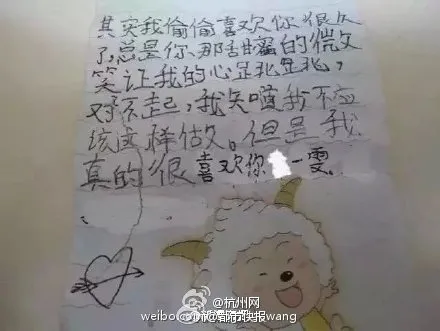 其实我偷偷喜欢你很久
了,总是你那甜蜜的微
笑让我的心
对不起,我知道我不应
该这样做。但是我
真的很喜欢你 一雯
@杭州网
weibo.com/
wang